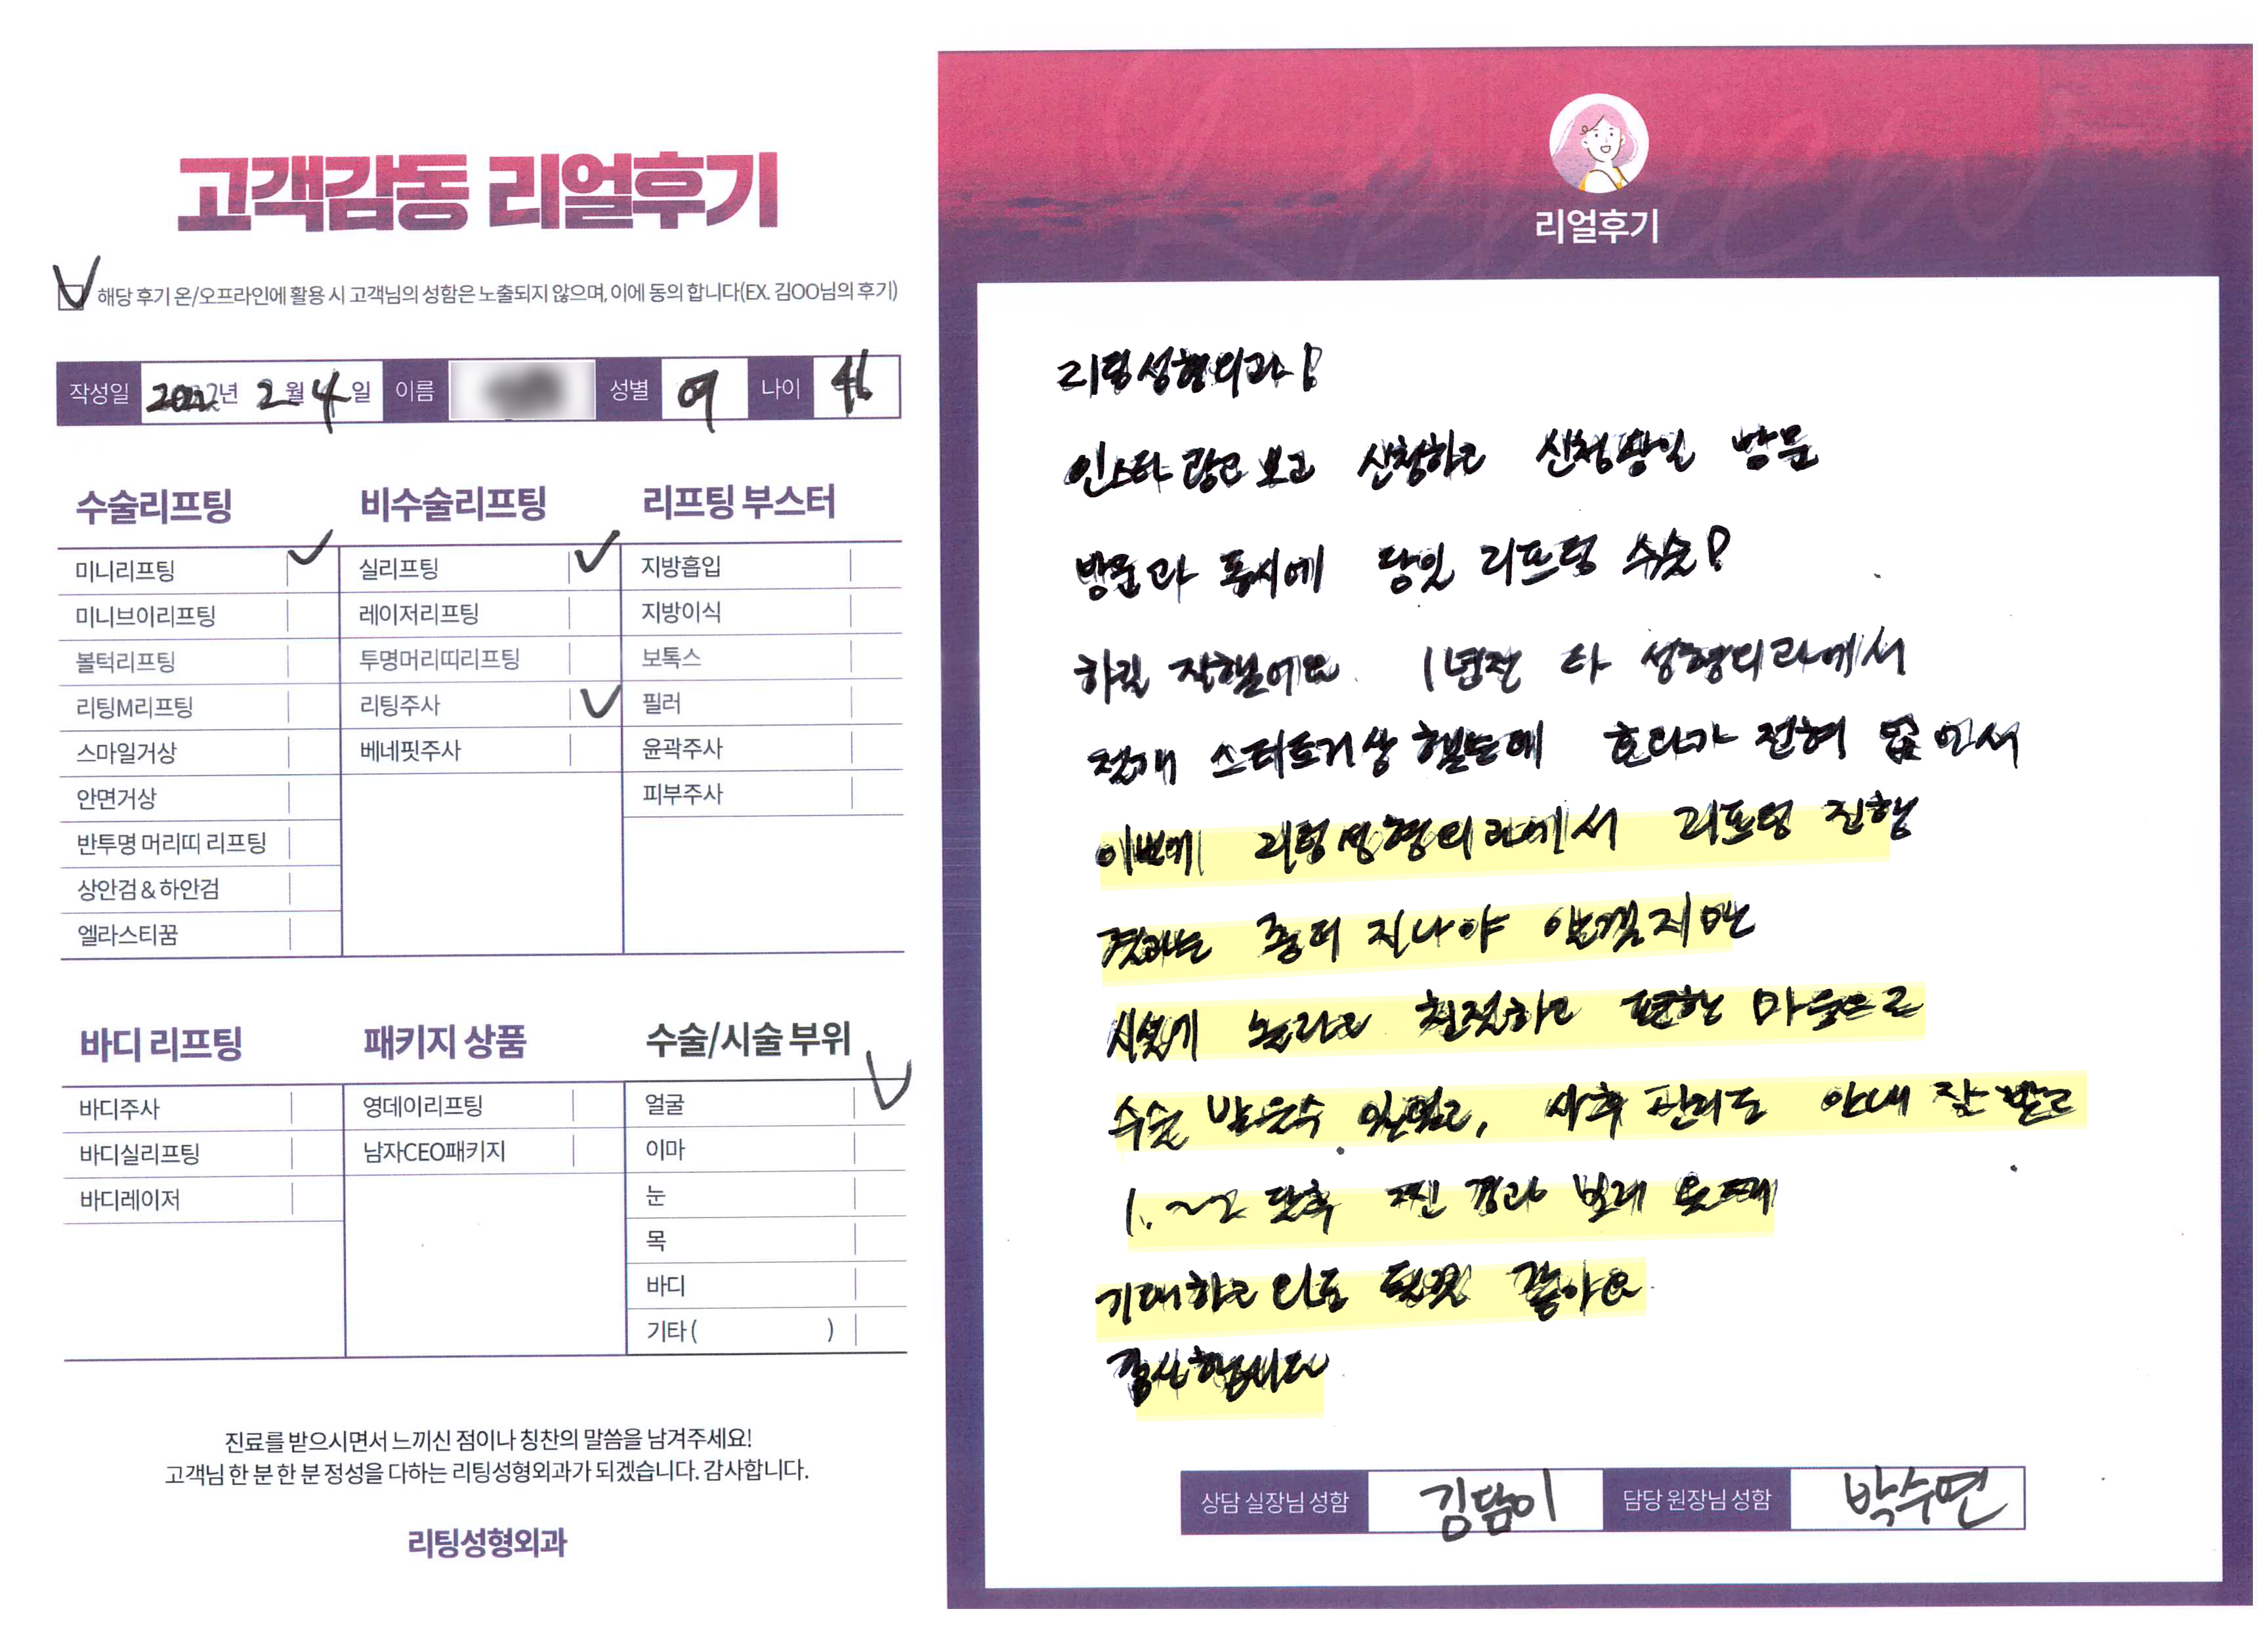 고객감동 리얼후기
해당 후기 온/오프라인에 활용 시 고객님의 성함은 노출되지 않으며, 이에 동의 합니다(EX. 김OO님의 후기)
작성일 2022년 2월 4일 이름 성별 여 나이 46
수술리프팅
미니리프팅
미니브이리프팅
볼턱리프팅
리팅M리프팅
스마일거상
안면거상
반투명 머리띠 리프팅
상안검 & 하안검
엘라스티꿈
비수술리프팅
실리프팅
레이저리프팅
투명머리띠리프팅
리팅주사
베네핏주사
리프팅 부스터
지방흡입
지방이식
보톡스
필러
윤곽주사
피부주사
바디 리프팅
바디주사
바디실리프팅
바디레이저
패키지 상품
영데이리프팅
남자CEO패키지
수술/시술 부위
얼굴
이마
눈
목
바디
기타 ( )
진료를 받으시면서 느끼신 점이나 칭찬의 말씀을 남겨주세요!
고객님 한 분 한 분 정성을 다하는 리팅성형외과가 되겠습니다. 감사합니다.
리팅성형외과
Review
리얼후기
리팅성형외과!
인스타 광고 보고 신청하고 신청당일 방문
방문과 동시에 당일 리프팅 수술!
하길 잘했어요 1년전 타 성형외과에서
절개 스티트거상 했는데 효과가 전혀 없어서
이번에 리팅성형외과에서 리프팅 진행
결과는 좀더 지나야 알겠지만
친절하고 편한 마음으로
수술 받을수 있었고, 사후 관리도 안내 잘 받고
1.~2 달후 찐 경과 보러 올때
기대하고 와도 될것 같아요
감사합니다
상담 실장님 성함 김담이 담당 원장님 성함 박수면